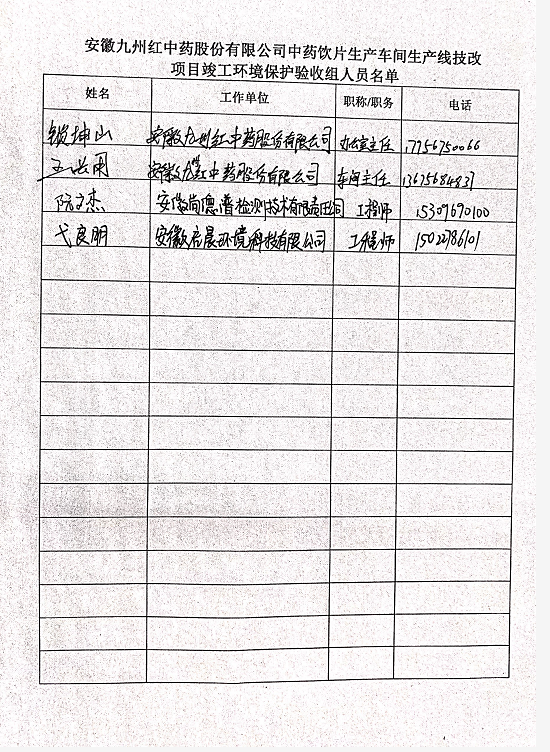 安徽九州红中药股份有限公司中药饮片生产车间生产线技改
项目竣工环境保护验收组人员名单
姓名 工作单位 职称/职务 电话
锁坤山 安徽九州红中药股份有限公司 办公室主任 17756750066
安徽九州红中药股份有限公司 车间主任
阮文杰 安徽尚德谱检测技术有限责任公司 工程师 15309690100
弋良朋 安徽启晨环境科技有限公司 工程师 15022786101